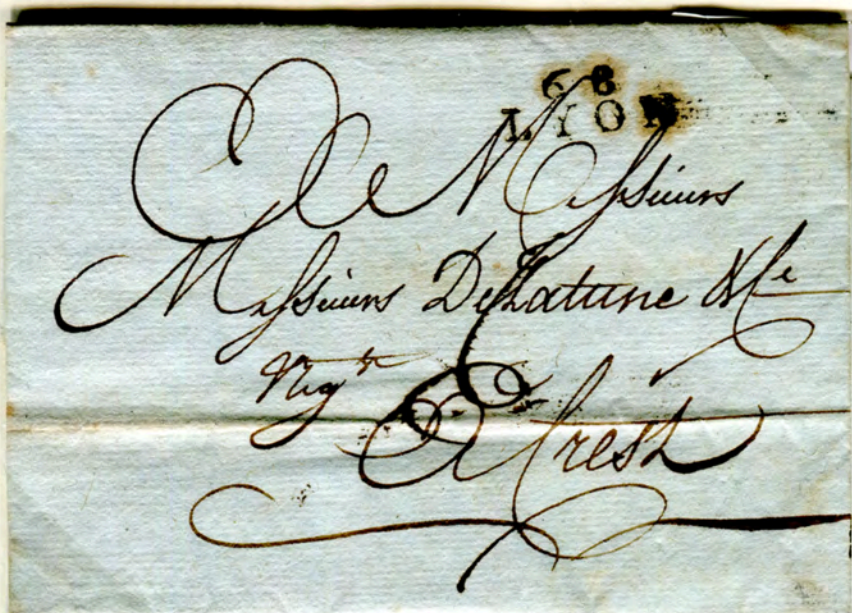 68
LYON
A Messieurs
Messieurs Delatune & Ce
Negts
A Crest